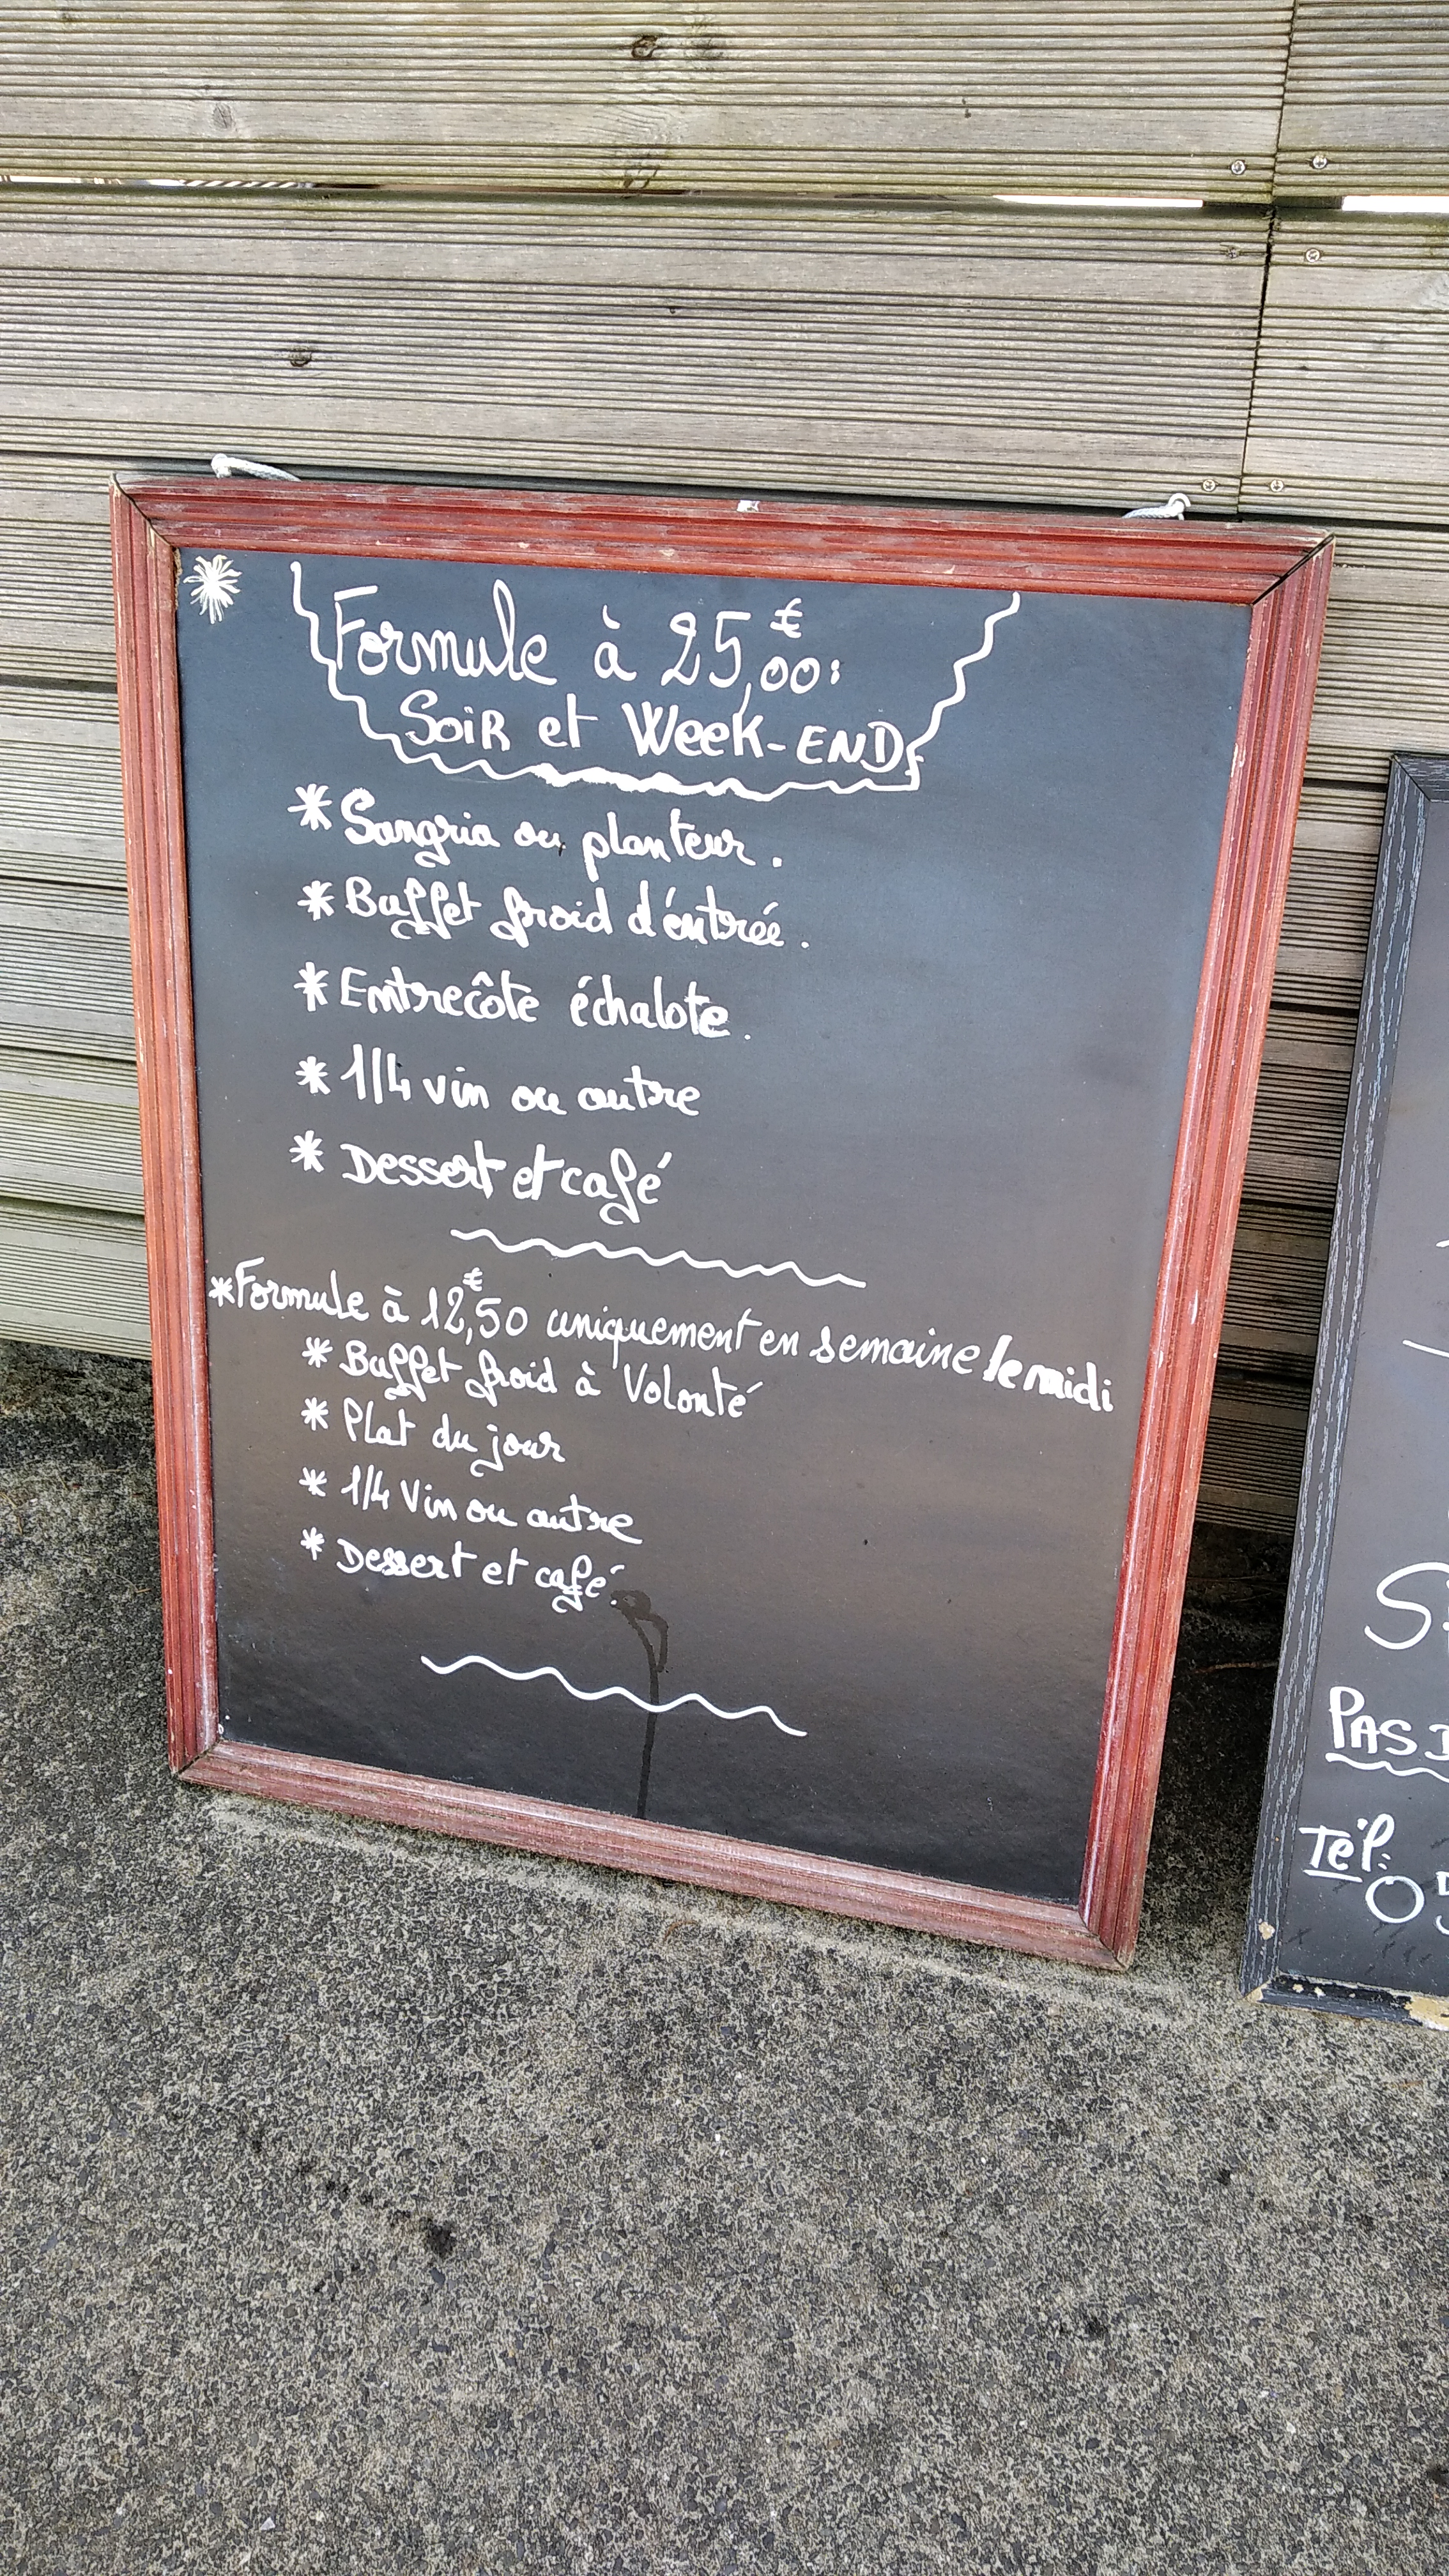 Formule à 25,00€:
Soir et Week-END
* Sangria ou planteur.
* Buffet froid d'éntrée.
* Entrecôte échalote.
* 1/4 vin ou autre
* Dessert et café
* Formule à 12,50€ uniquement en semaine le midi
* Buffet froid à Volonté
* Plat du jour
* 1/4 Vin ou autre
* Dessert et café.
PAS
Tél: